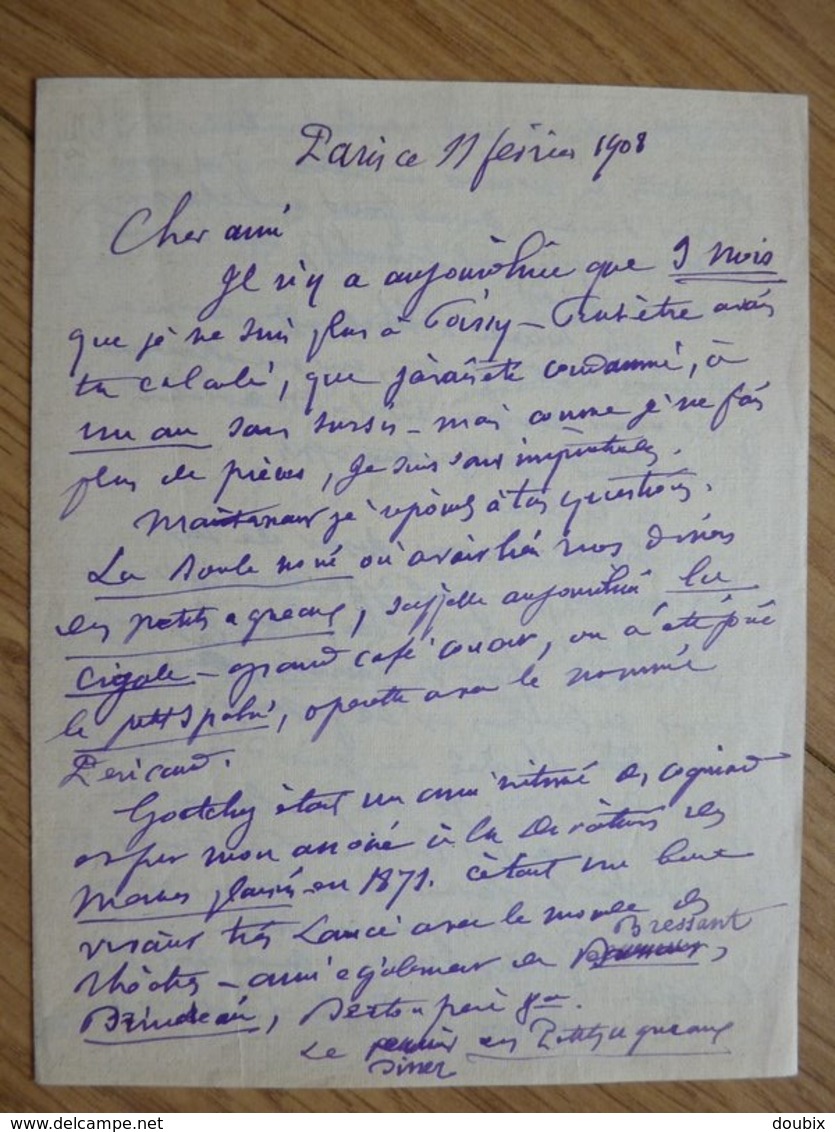 Paris ce 11 février 1908
Cher ami
Il n'y a aujourd'hui que 9 mois
que je ne suis plus à Poissy - Peut être avais
tu calculé, que j'avais été condamné, à
un an sans sursis - mais comme je ne fais
plus de pièces, je suis sans inquiétudes.
Maintenant je réponds à tes questions.
La Boule noire où avait lieu nos diners
des petits agneaux, s'appelle aujourd'hui la
Cigale - grand café concert, on a été joué
le petit, opérette avec le nommé
Pericaud.
était un ami intime de Cogniard
et fut mon associé à la Direction des
Menus plaisirs en 1871. C'était un bon
vivant très lancé avec le monde des
théâtres - ami également de Bressant,
Brindeau, Berton père &a.
Le diner des Petits agneaux
doubix